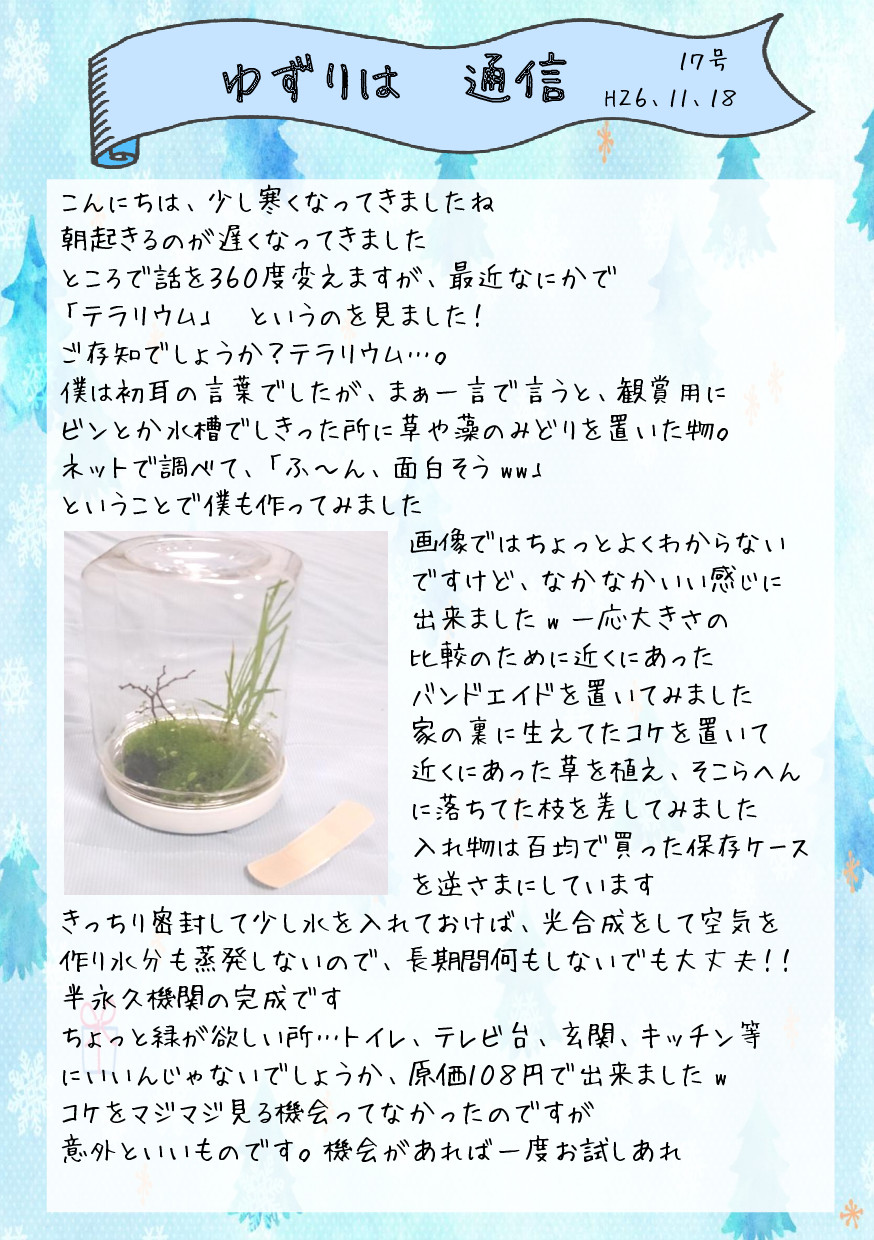 ゆずりは 通信
17号
H26、11、18
こんにちは、少し寒くなってきましたね
朝起きるのが遅くなってきました
ところで話を360度変えますが、最近なにかで
「テラリウム」 というのを見ました!
ご存知でしょうか?テラリウム…。
僕は初耳の言葉でしたが、まぁ一言で言うと、観賞用に
ビンとか水槽でしきった所に草や藻のみどりを置いた物。
ネットで調べて、「ふ〜ん、面白そうww」
ということで僕も作ってみました
画像ではちょっとよくわからない
ですけど、なかなかいい感じに
出来ましたw 一応大きさの
比較のために近くにあった
バンドエイドを置いてみました
家の裏に生えてたコケを置いて
近くにあった草を植え、そこらへん
に落ちてた枝を差してみました
入れ物は百均で買った保存ケース
を逆さまにしています
きっちり密封して少し水を入れておけば、光合成をして空気を
作り水分も蒸発しないので、長期間何もしないでも大丈夫!!
半永久機関の完成です
ちょっと緑が欲しい所…トイレ、テレビ台、玄関、キッチン等
にいいんじゃないでしょうか、原価108円で出来ましたw
コケをマジマジ見る機会ってなかったのですが
意外といいものです。機会があれば一度お試しあれ